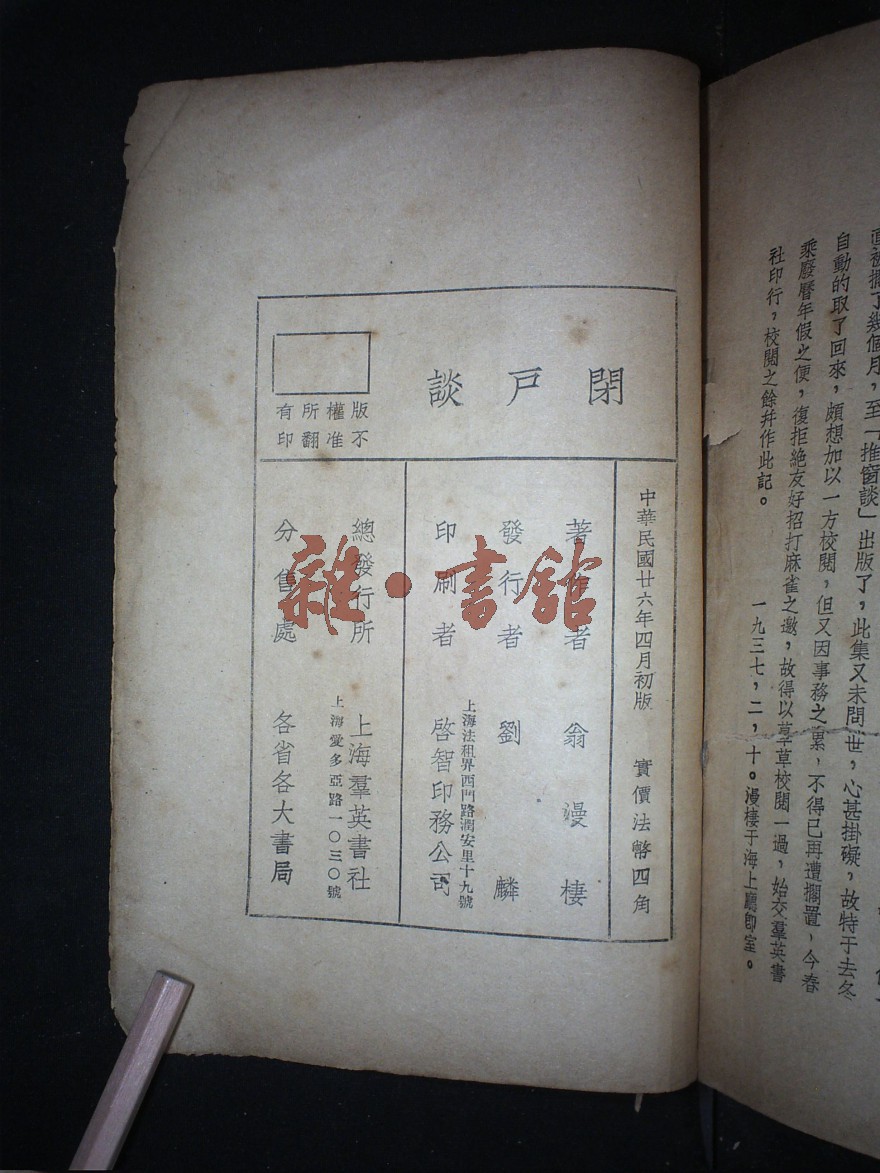 直被擱了幾個月，至「推窗談」出版了，此集又未問世，心甚掛礙，故特于去冬
自動的取了回來，頗想加以一方校閱，但又因事務之累，不得已再遭擱置，今春
乘廢曆年假之便，復拒絕友好招打麻雀之邀，故得以草草校閱一過，始交羣英書
社印行，校閱之餘并作此記。
一九三七，二，十。漫棲于海上廳卽室。
閉戶談
版權所有
不准翻印
中華民國廿六年四月初版
實價法幣四角
著作者 翁漫棲
發行者 劉麟
印刷者 啓智印務公司
上海法租界西門路潤安里十九號
總發行所 上海羣英書社
上海愛多亞路一〇三〇號
分售處 各省各大書局
雜·書館